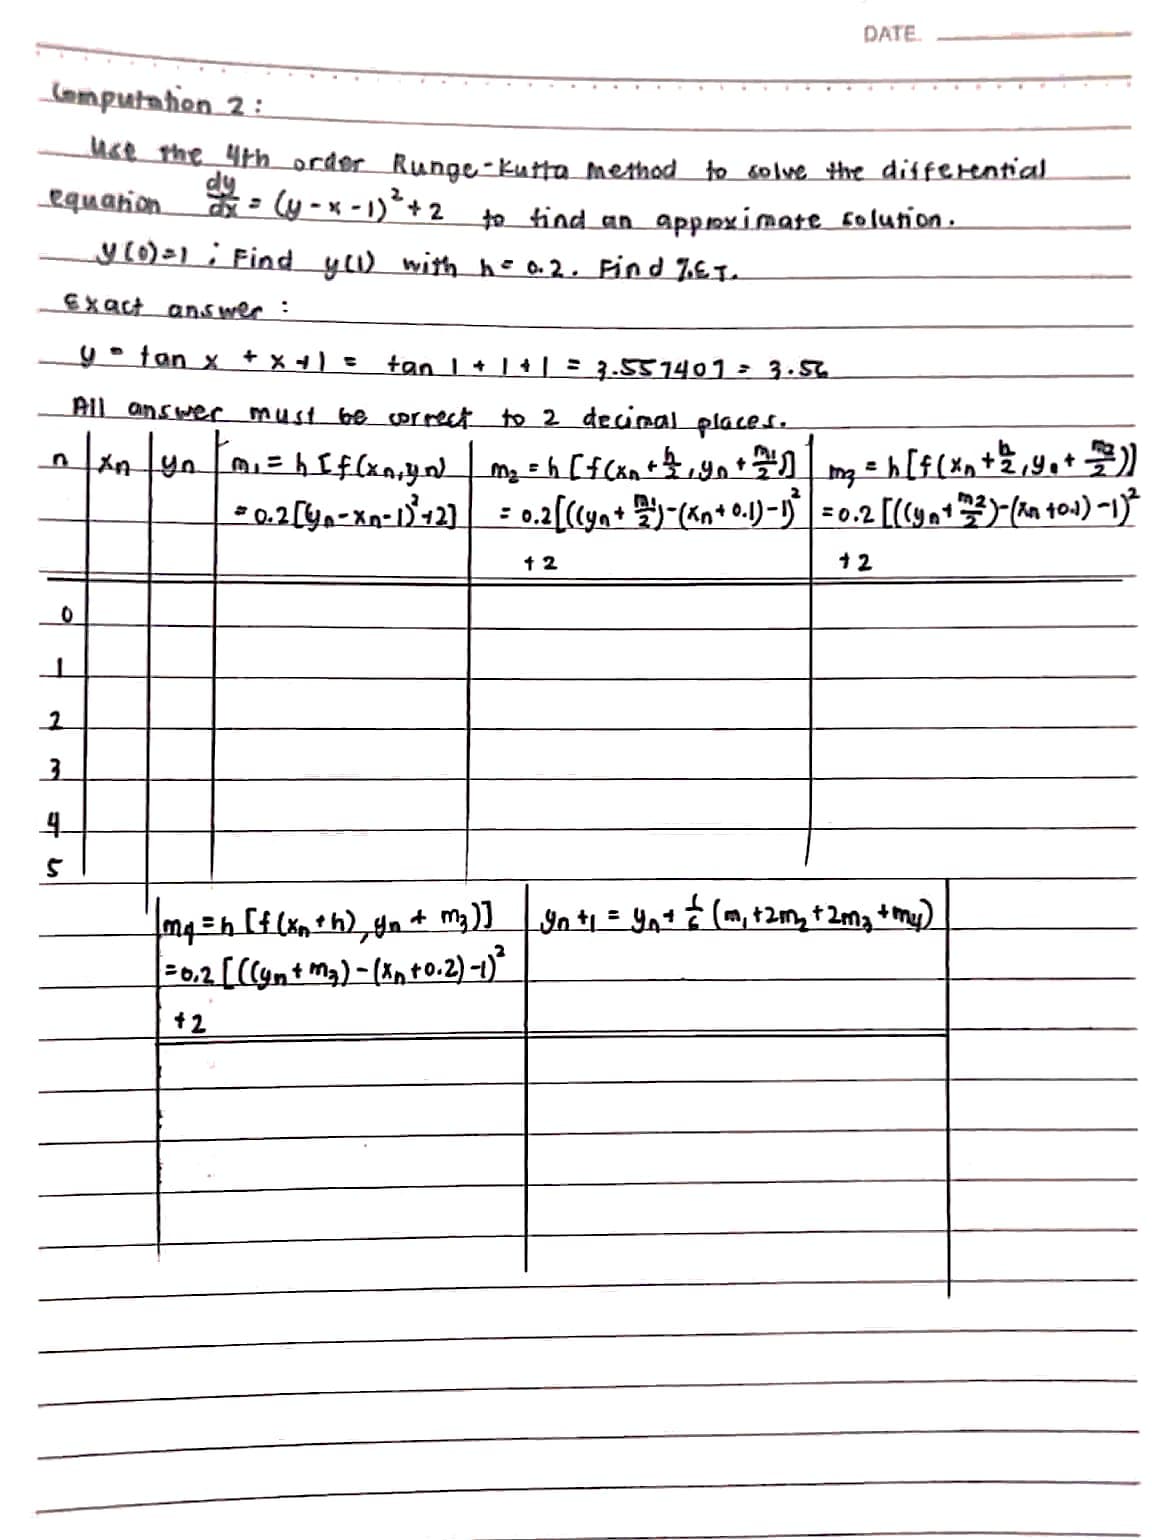 DATE
Computation 2:
Use the 4th order Runge-Kutta method to solve the differential
equation dy/dx = (y-x-1)² + 2 to find an approximate solution.
y(0)=1 ; Find y(1) with h=0.2. Find %ET.
Exact answer:
y = tan x + x + 1 = tan 1 + 1 + 1 = 3.557407 = 3.56
All answer must be correct to 2 decimal places.
n xn yn m₁ = h [f(xn,yn) m₂ = h [f(xn + h/2, yn + m₁/2)] m₃ = h[f(xn + h/2, yn + m₂/2)]
= 0.2[yn-xn-1)²+2] = 0.2[((yn + m₁/2)-(xn+0.1)-1)² = 0.2 [((yn+ m2/2)-(xn+0.1)-1)²
+ 2 + 2
0
1
2
3
4
5
m₄ = h [f(xn+h), yn + m₃)] yn+1 = yn + 1/6 (m₁+2m₂+2m₃+m₄)
= 0.2 [((yn+m₃)-(xn+0.2)-1)²
+2